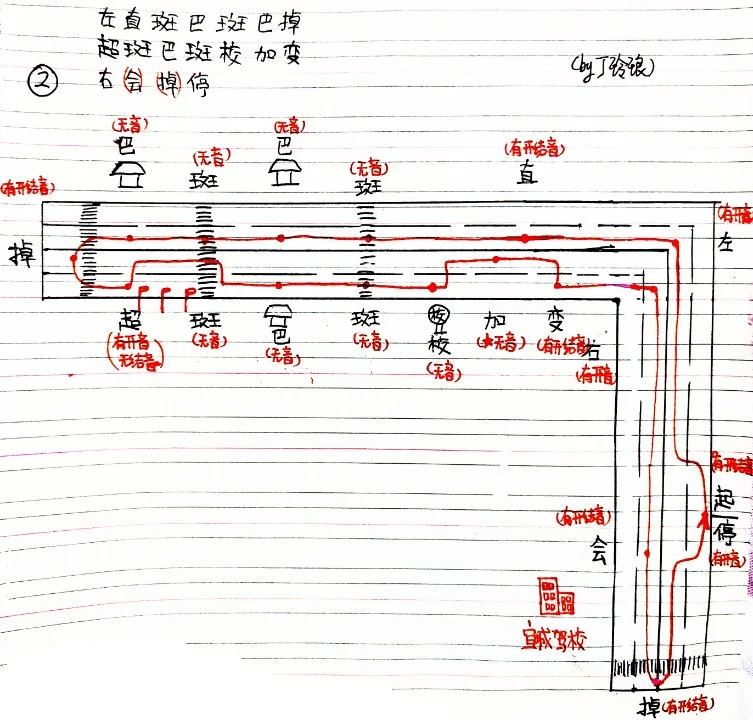 左直斑巴斑巴掉
超斑巴斑校加变
② 右(会)(掉)停
(by丁铃铛)
(无音) (无音)
巴 巴
(无音) (无音) (有开结音)
斑 斑 直
(有开结音) (有开音)
掉 左
超 斑 巴 斑 校 加 变
(有开音 (无音) (无音) (无音) (无音) (无音) (有开结音)
无结音)
右
(有开音)
(有开结音)
起
(有开结音) 停
会 (有开音)
宜城驾校
掉(有开结音)